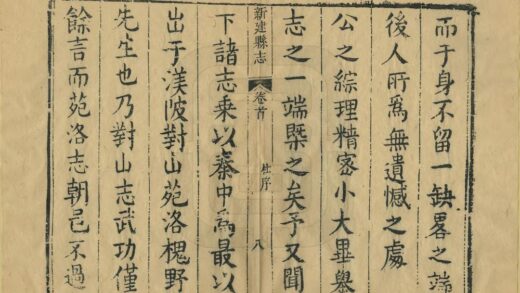 而于身不留一缺畧之端
後人所爲無遺憾之處
公之綜理精密小大畢舉
志之一端槩之矣予又聞
新建縣志
卷首
杜序
八
下諸志乘以秦中爲最以
出于渼陂對山苑洛槐野
先生也乃對山志武功僅
餘言而苑洛志朝邑不過